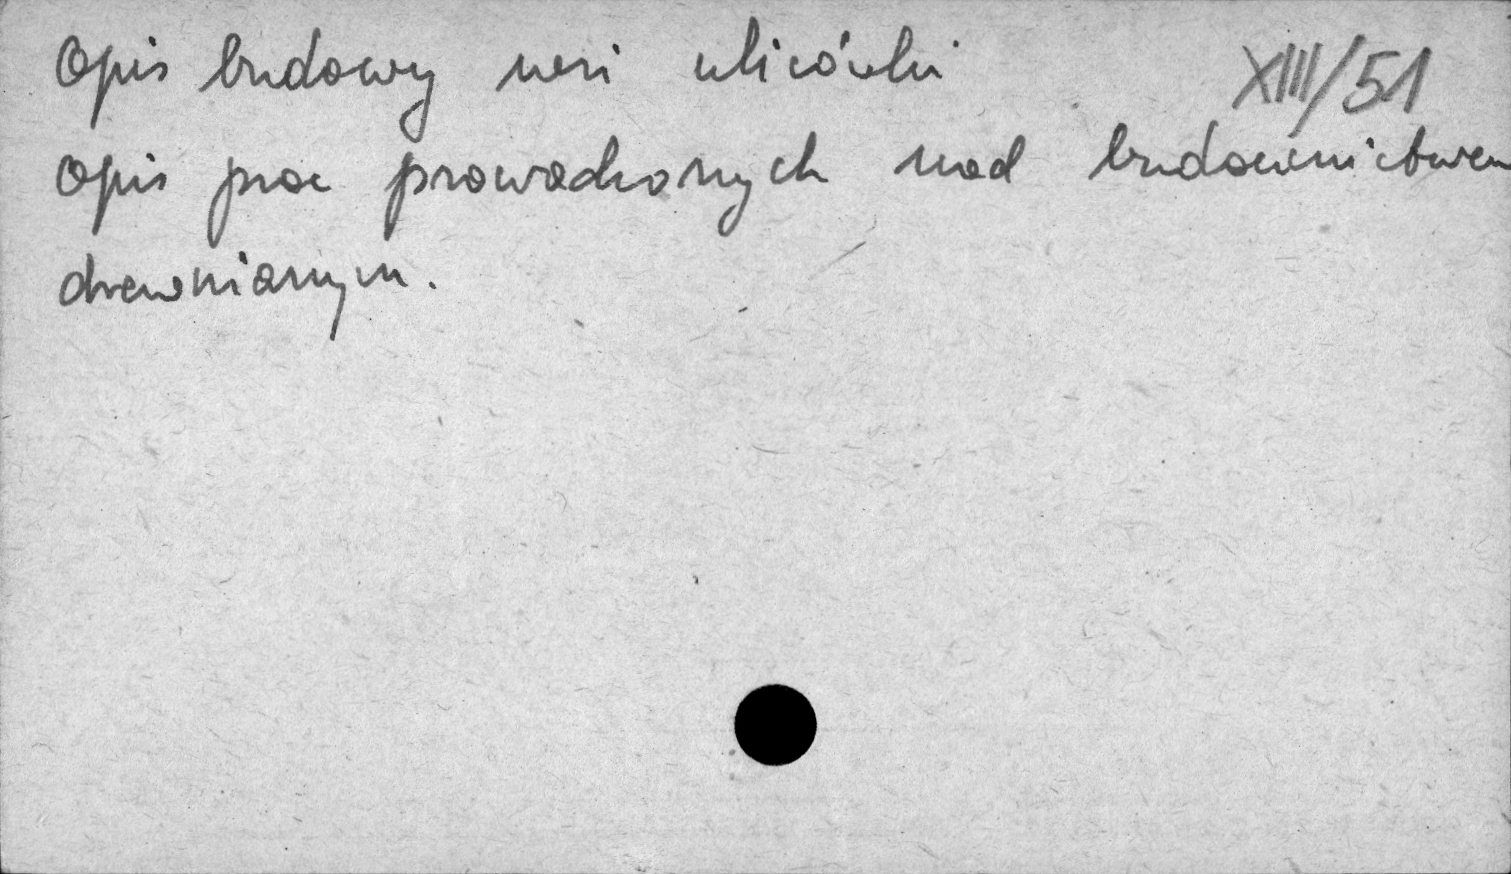 Opis budowy wsi ulicówki XIII/51
Opis prac prowadzonych nad budownictwem
drewnianym.